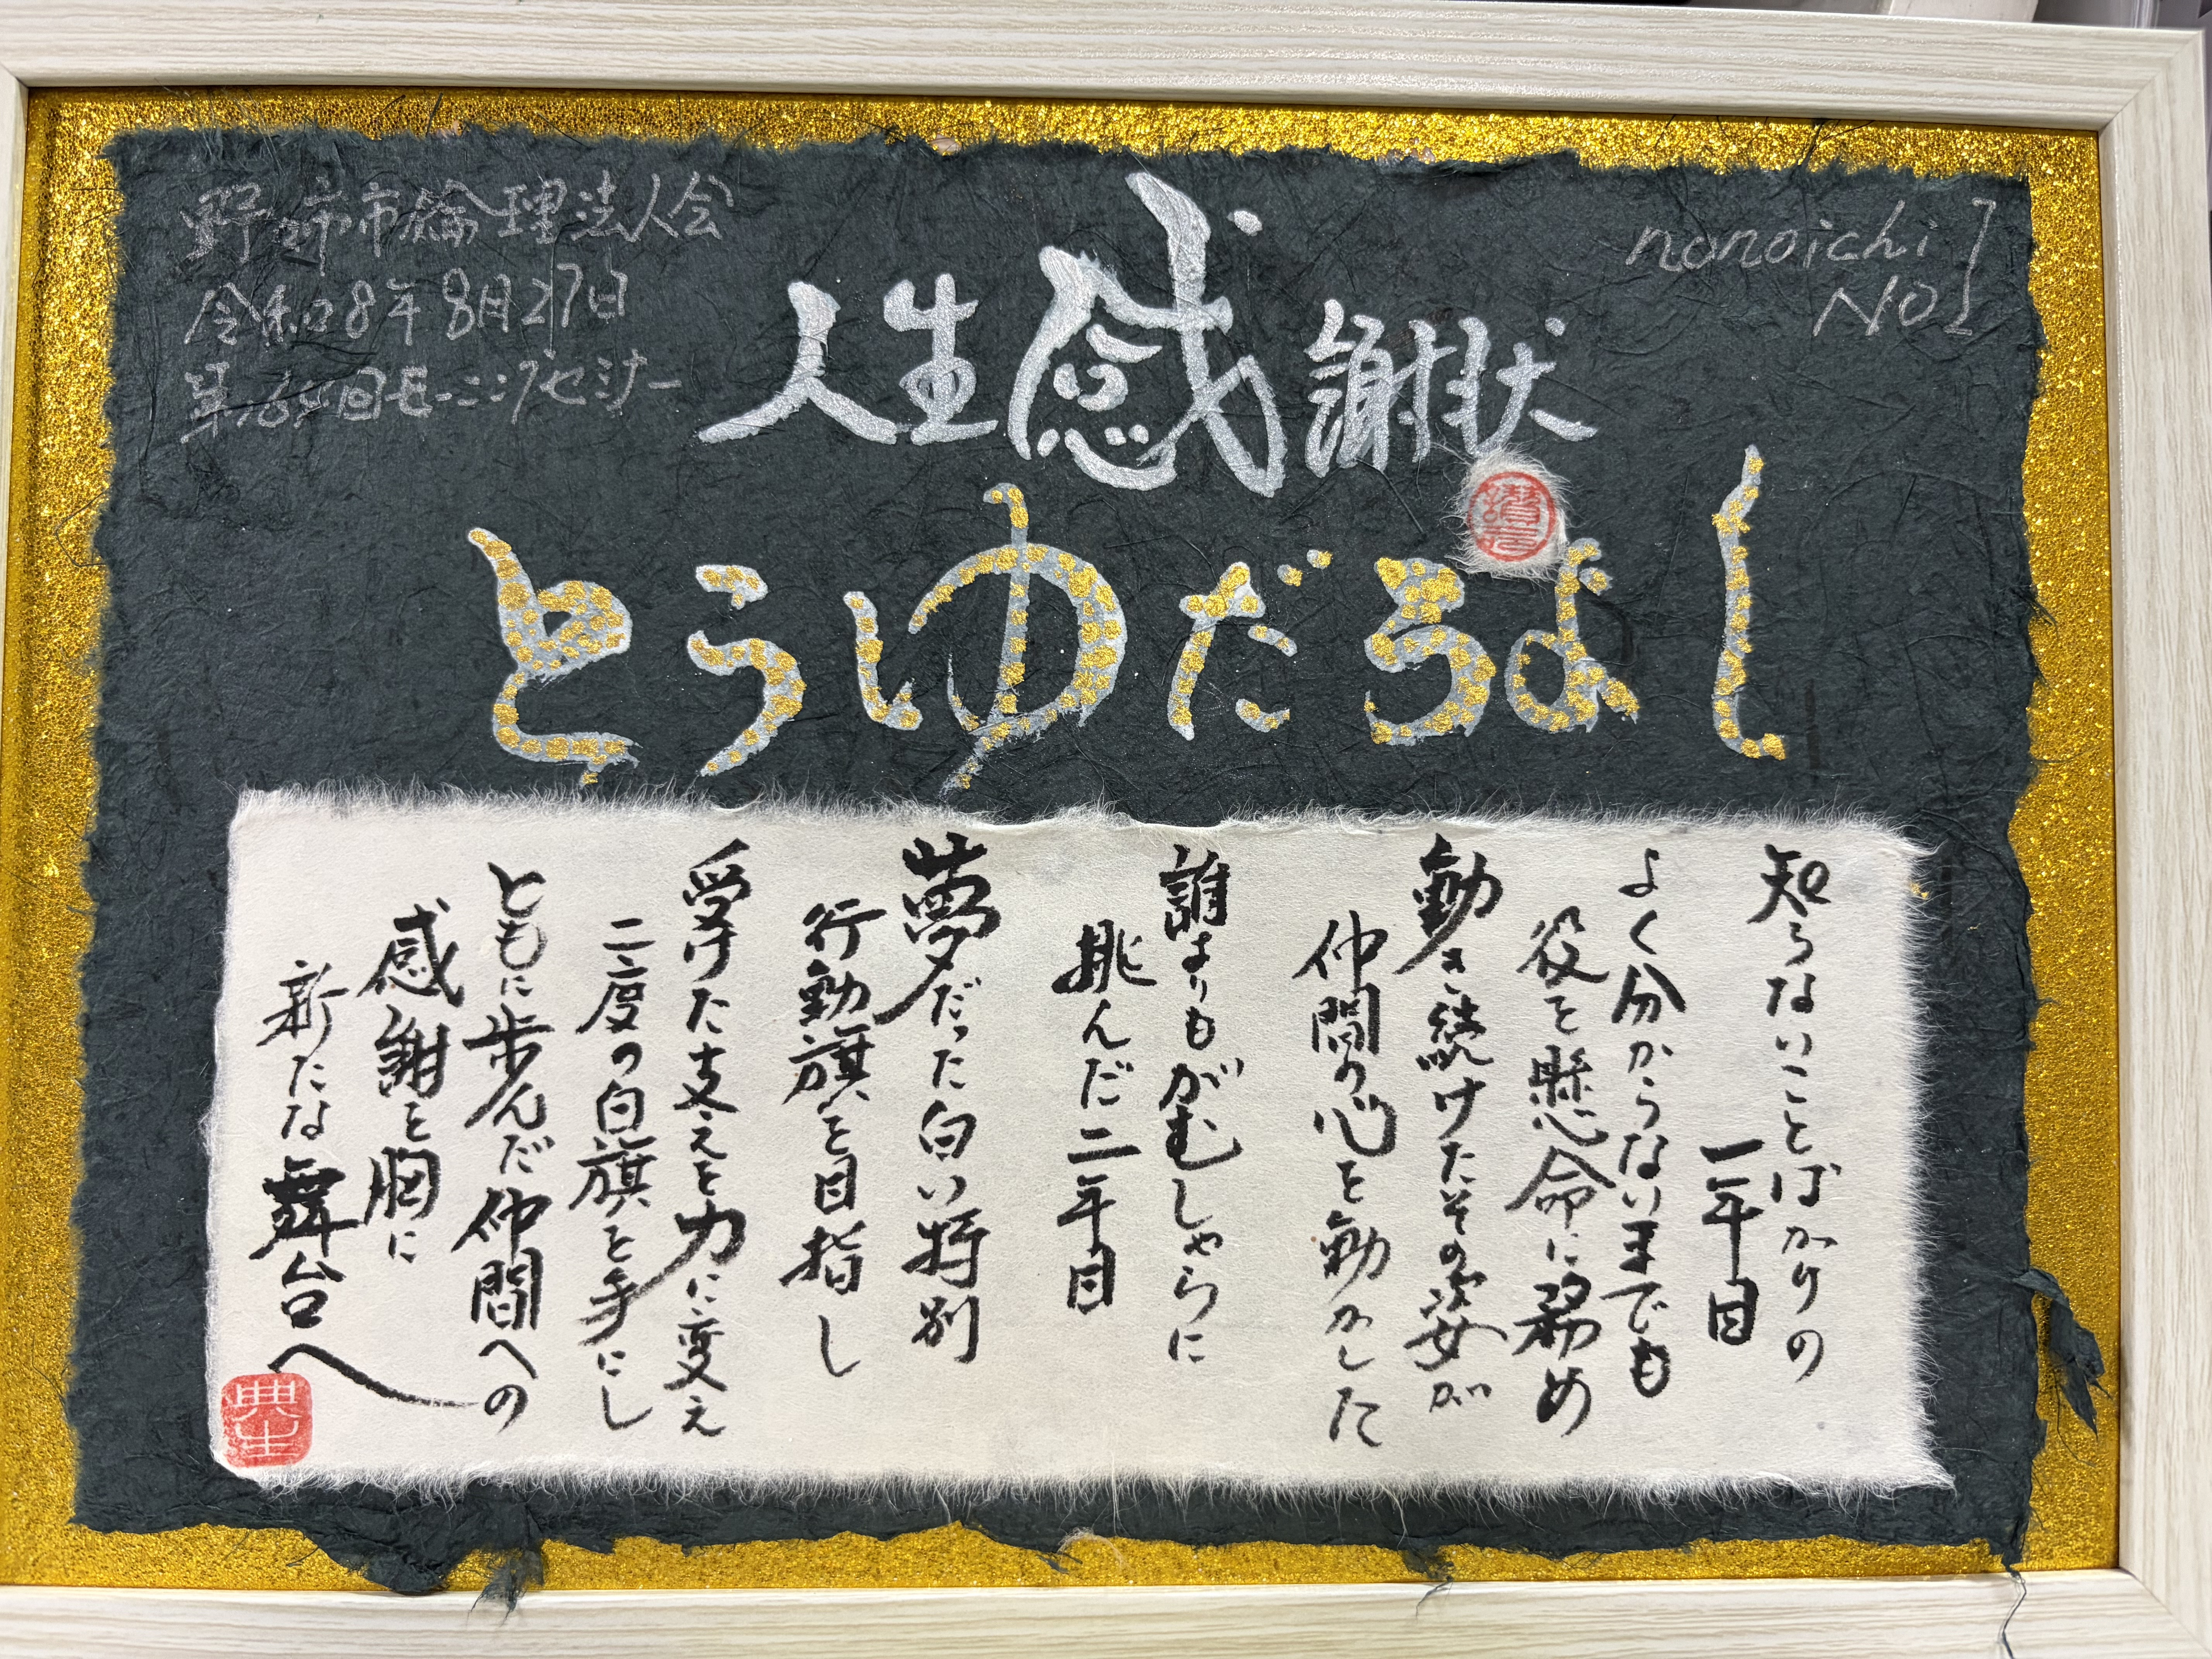 野々市市倫理法人会
令和8年8月27日
nonoichi
No1
人生感謝状
とうゆだろよし
知らないことばかりの
一年目
よく分からないまでも
役を懸命に務め
動き続けたその姿が
仲間の心を動かした
誰よりもがむしゃらに
挑んだ二年目
夢だった白い特別
行動旗を目指し
受けた支えを力に変え
二度の白旗を手にし
ともに歩んだ仲間への
感謝を胸に
新たな舞台へ
典生